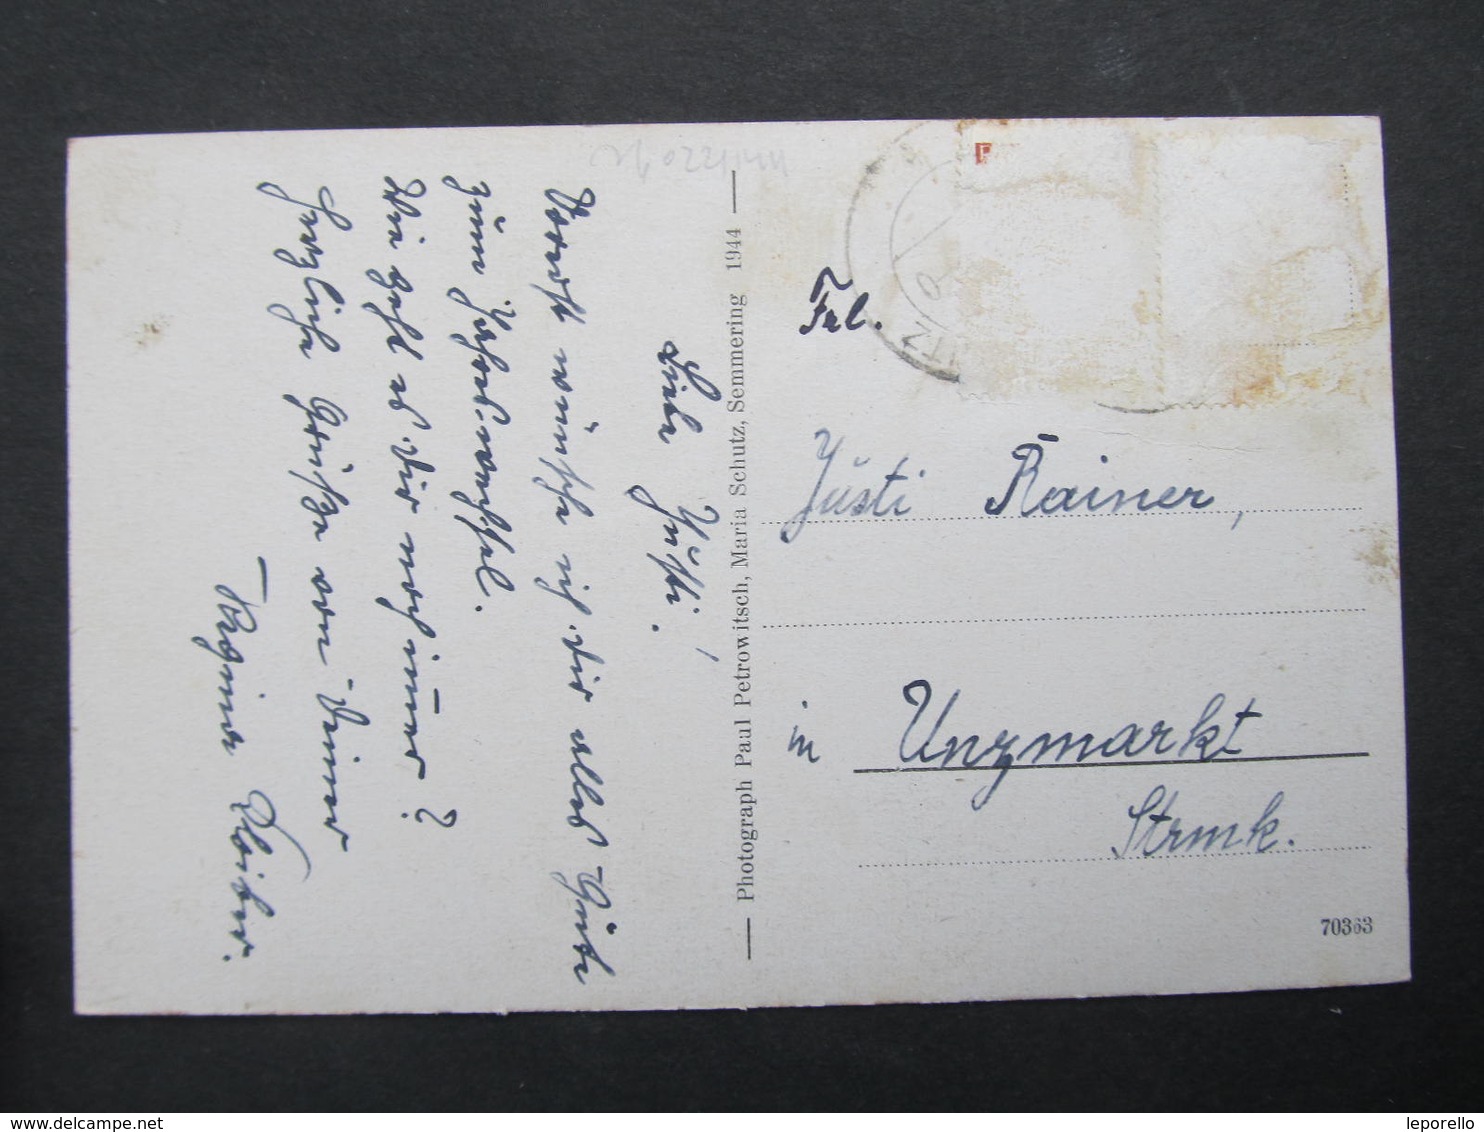 Liebe Justi!
Vorerst wünsche ich Dir alles Gute
zum Jahreswechsel.
Wie geht es Dir noch immer?
Herzliche Grüße von Deiner
Photograph Paul Petrowitsch, Maria Schutz, Semmering 1944
Frl.
Justi Rainer,
in Unzmarkt
Strmk.
70363
www.delcampe.net
leporello